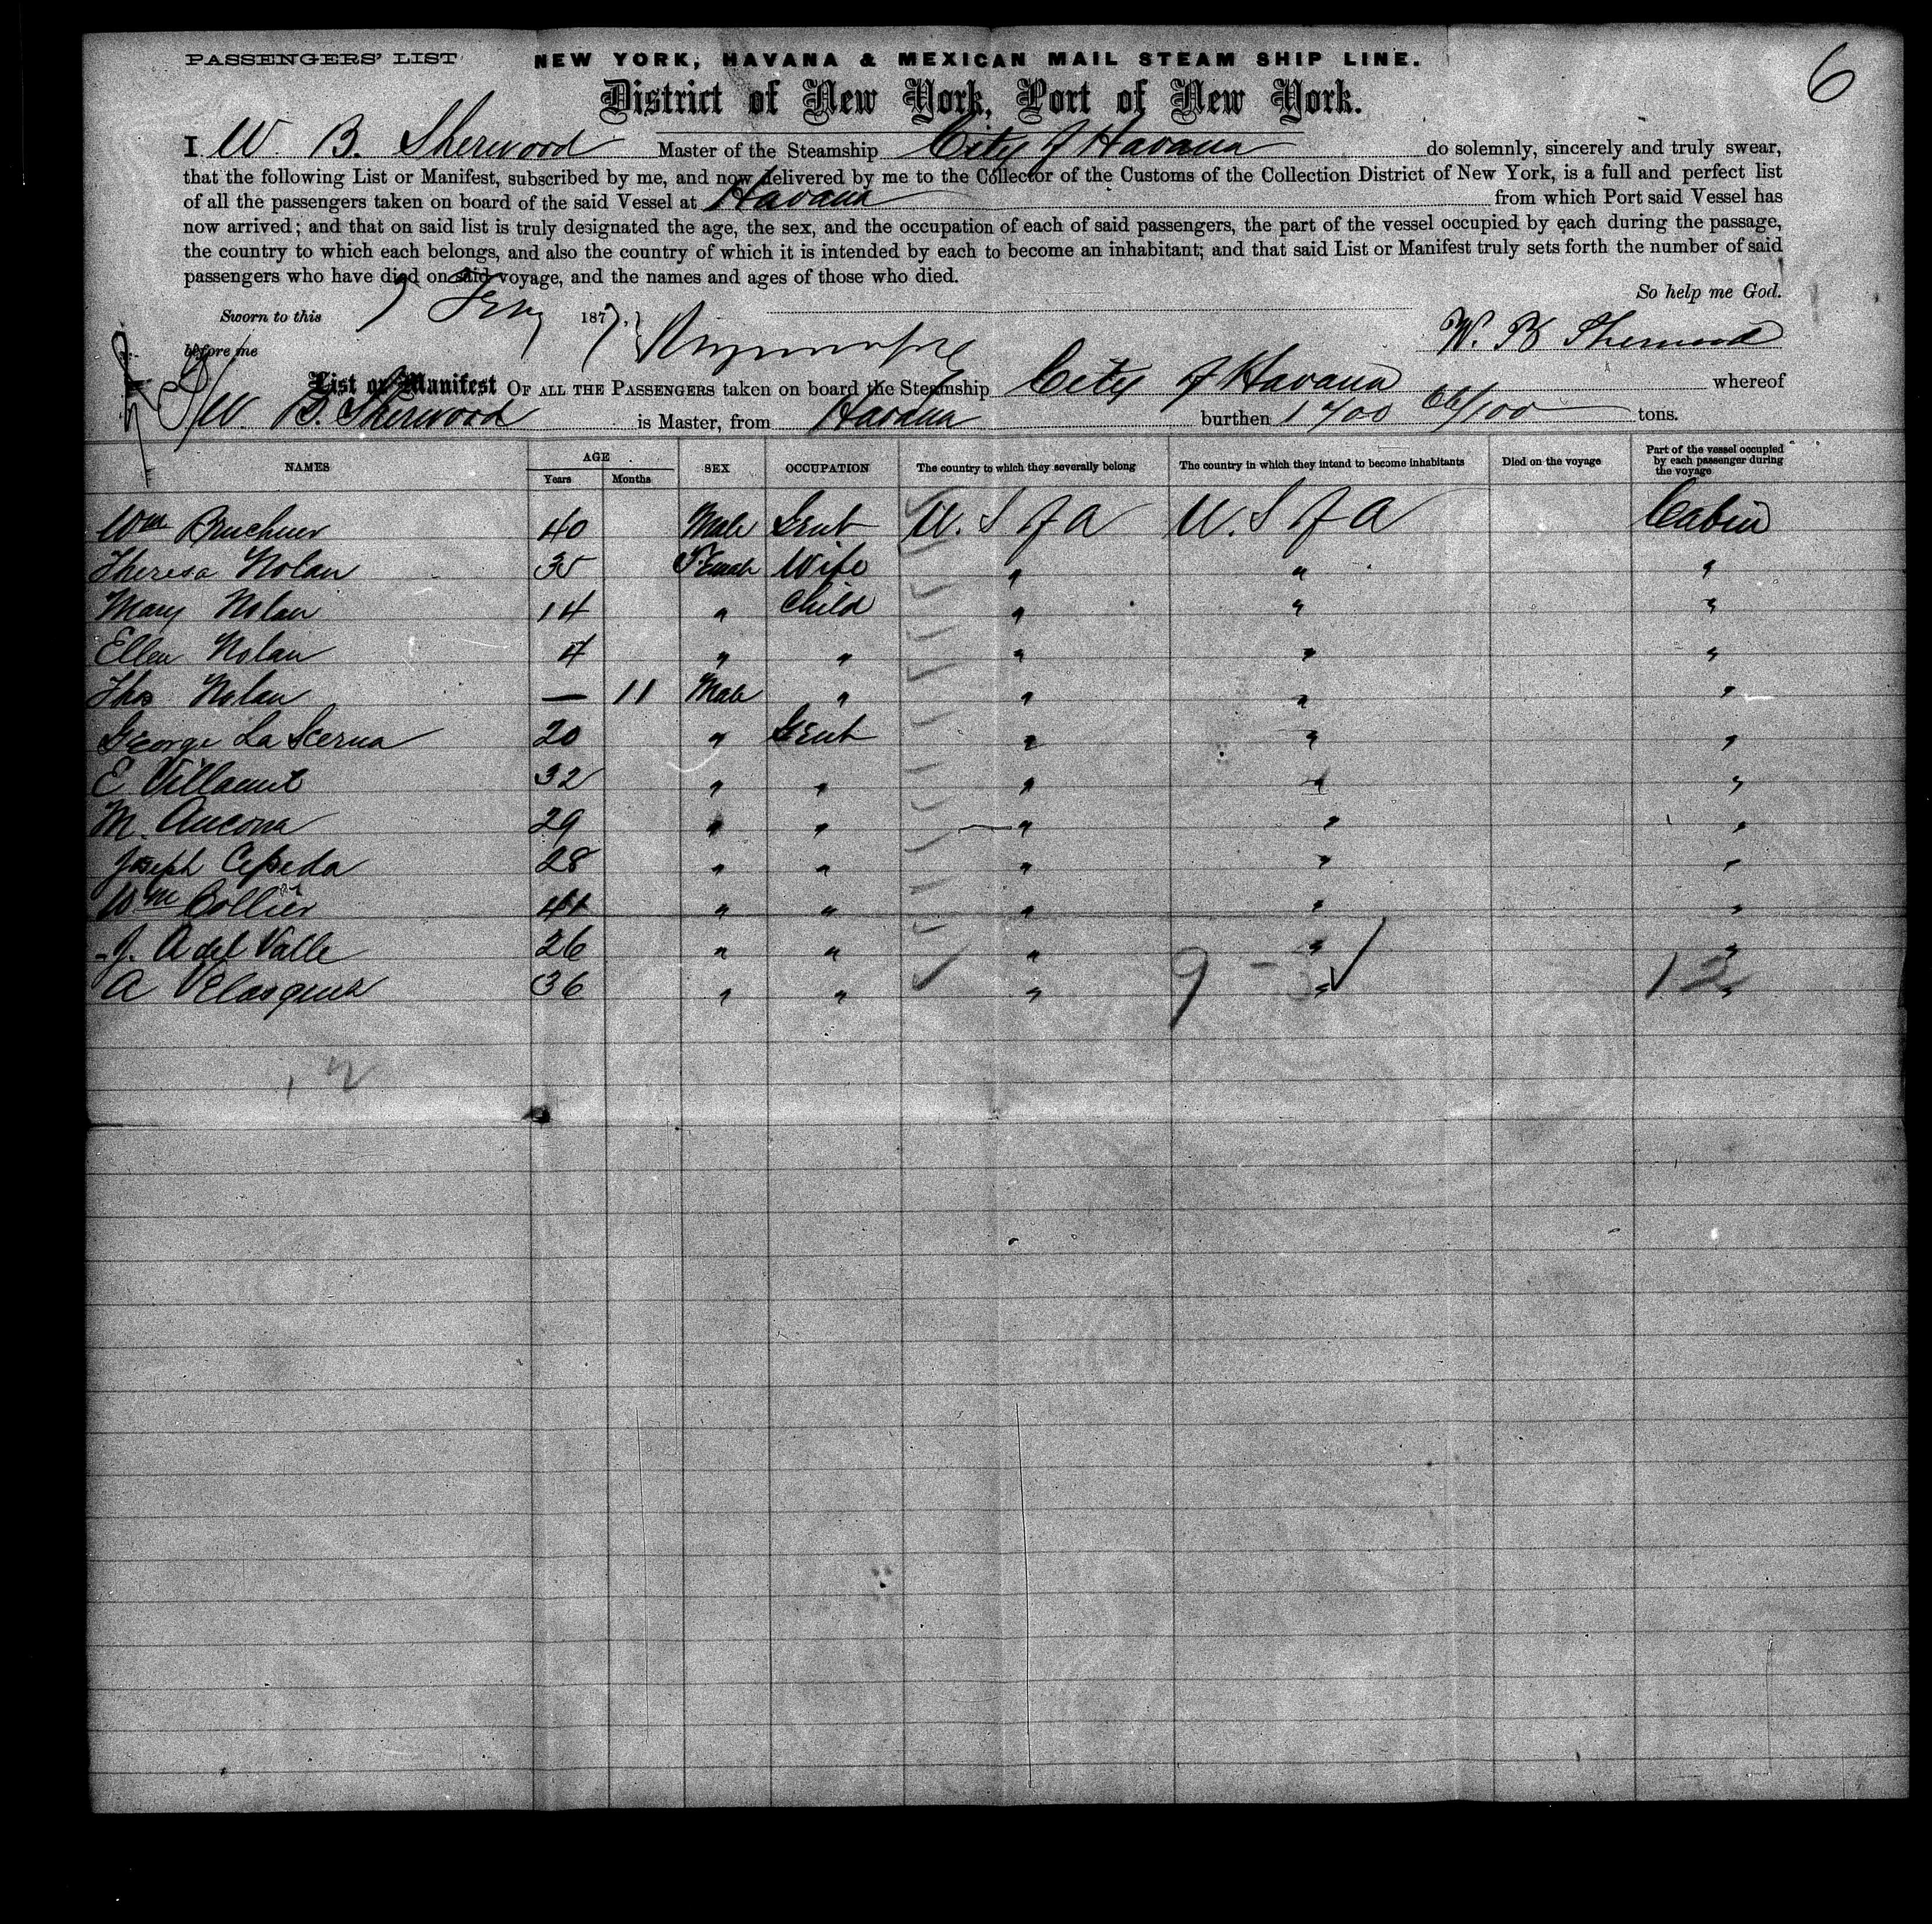 PASSENGERS' LIST NEW YORK, HAVANA & MEXICAN MAIL STEAM SHIP LINE. 6
District of New York, Port of New York.
I W. B. Sherwood Master of the Steamship City of Havana do solemnly, sincerely and truly swear,
that the following List or Manifest, subscribed by me, and now delivered by me to the Collector of the Customs of the Collection District of New York, is a full and perfect list
of all the passengers taken on board of the said Vessel at Havana from which Port said Vessel has
now arrived; and that on said list is truly designated the age, the sex, and the occupation of each of said passengers, the part of the vessel occupied by each during the passage,
the country to which each belongs, and also the country of which it is intended by each to become an inhabitant; and that said List or Manifest truly sets forth the number of said
passengers who have died on said voyage, and the names and ages of those who died.
So help me God.
Sworn to this 7 Feby 1877
before me W. B Sherwood
List or Manifest OF ALL THE PASSENGERS taken on board the Steamship City of Havana whereof
W. B. Sherwood is Master, from Havana burthen 1700 /100 tons.
NAMES AGE Years Months SEX OCCUPATION The country to which they severally belong The country in which they intend to become inhabitants Died on the voyage Part of the vessel occupied by each passenger during the voyage
Wm 40 Male Gent U. S of A U. S of A Cabin
Theresa Nolan 35 Female Wife " " "
Mary Nolan 14 " Child " " "
Ellen Nolan 4 " " " " "
Thos Nolan — 11 Male " " " "
George La Scerna 20 " Gent " " "
E Villamil 32 " " " " "
M. Ancona 29 " " " " "
Joseph Cepeda 28 " " " " "
Wm Collier 41 " " " " "
J. A del Valle 26 " " " " "
A Velasquez 36 " " " 9 - 3 " 12 "
12